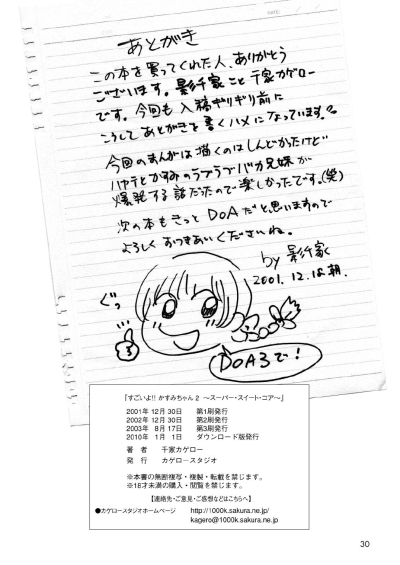 あとがき
この本を買ってくれた人、ありがとう
ございます。影千家こと千家カゲロー
です。今回も入稿ギリギリ前に
こうしてあとがきを書くハメになっています。
今回のまんがは描くのはしんどかったけど
ハヤテとかすみのラブラブバカ兄妹が
爆発する話だったので楽しかったです。(笑)
次の本もきっとDOAだと思いますので
よろしくおつきあいくださいね。
by 影千家
2001.12.18 朝.
ぐっ
DOA3で!
「すごいよ!! かすみちゃん 2 〜スーパー・スイート・コア〜」
2001年 12月 30日 第1刷発行
2002年 12月 30日 第2刷発行
2003年 8月 17日 第3刷発行
2010年 1月 1日 ダウンロード版発行
著 者 千家カゲロー
発 行 カゲロースタジオ
※本書の無断複写・複製・転載を禁じます。
※18才未満の購入・閲覧を禁じます。
【連絡先・ご意見・ご感想などはこちらへ】
●カゲロースタジオホームページ http://1000k.sakura.ne.jp/
kagero@1000k.sakura.ne.jp
30